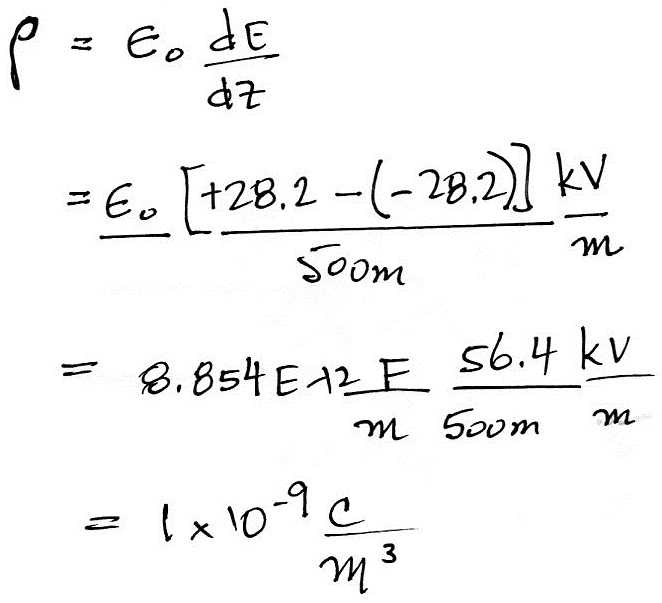 ρ = ϵ₀ dE/dz
= ϵ₀ [+28.2 - (-28.2)]/500m kV/m
= 8.854E-12 F/m 56.4/500m kV/m
= 1 x 10⁻⁹ C/m³